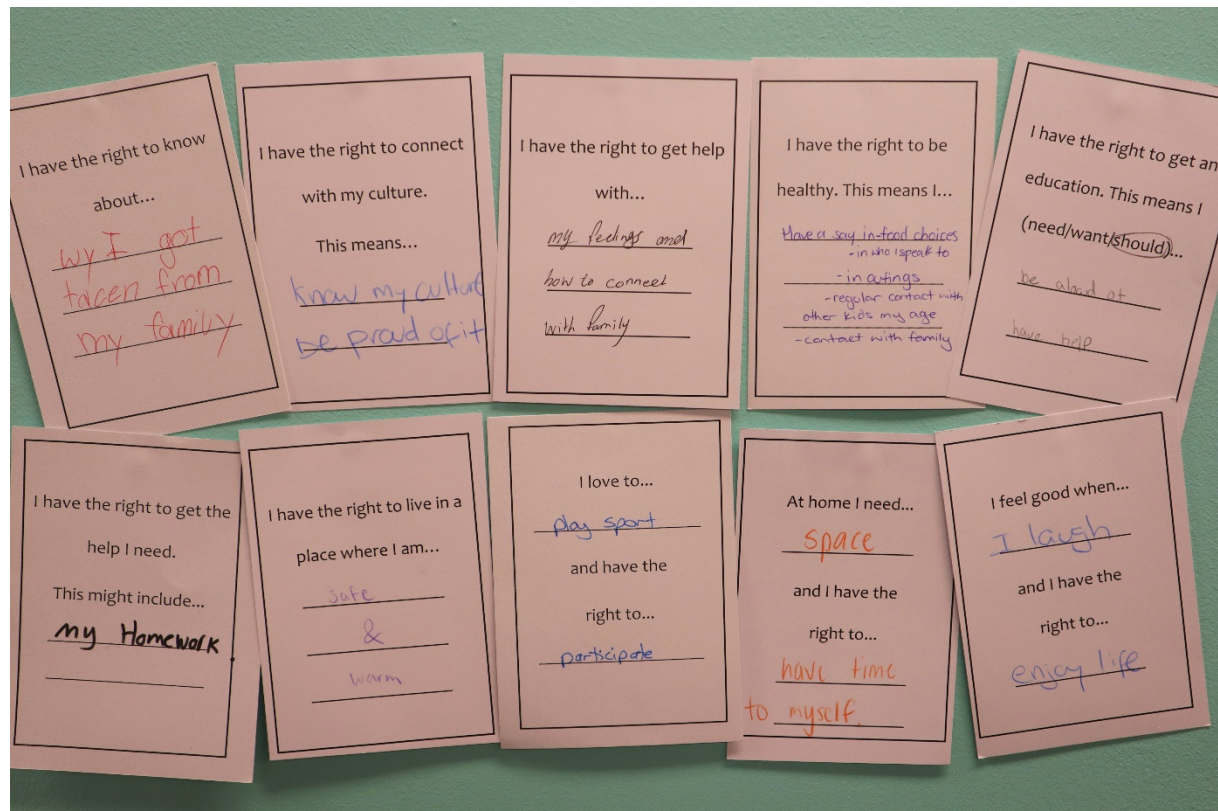 I have the right to know
about...
wy I got
tacen from
my family
I have the right to connect
with my culture.
This means...
know my culture
be proud of it
I have the right to get help
with...
my feelings and
how to connect
with family
I have the right to be
healthy. This means I...
Have a say in-food choices
-in who I speak to
-in outings
-regular contact with
other kids my age
-contact with family
I have the right to get an
education. This means I
(need/want/should)...
be at
have help
I have the right to get the
help I need.
This might include...
my Homework.
I have the right to live in a
place where I am...
safe
&
warm
I love to...
play sport
and have the
right to...
participate
At home I need...
space
and I have the
right to...
have time
to myself.
I feel good when...
I laugh
and I have the
right to...
enjoy life